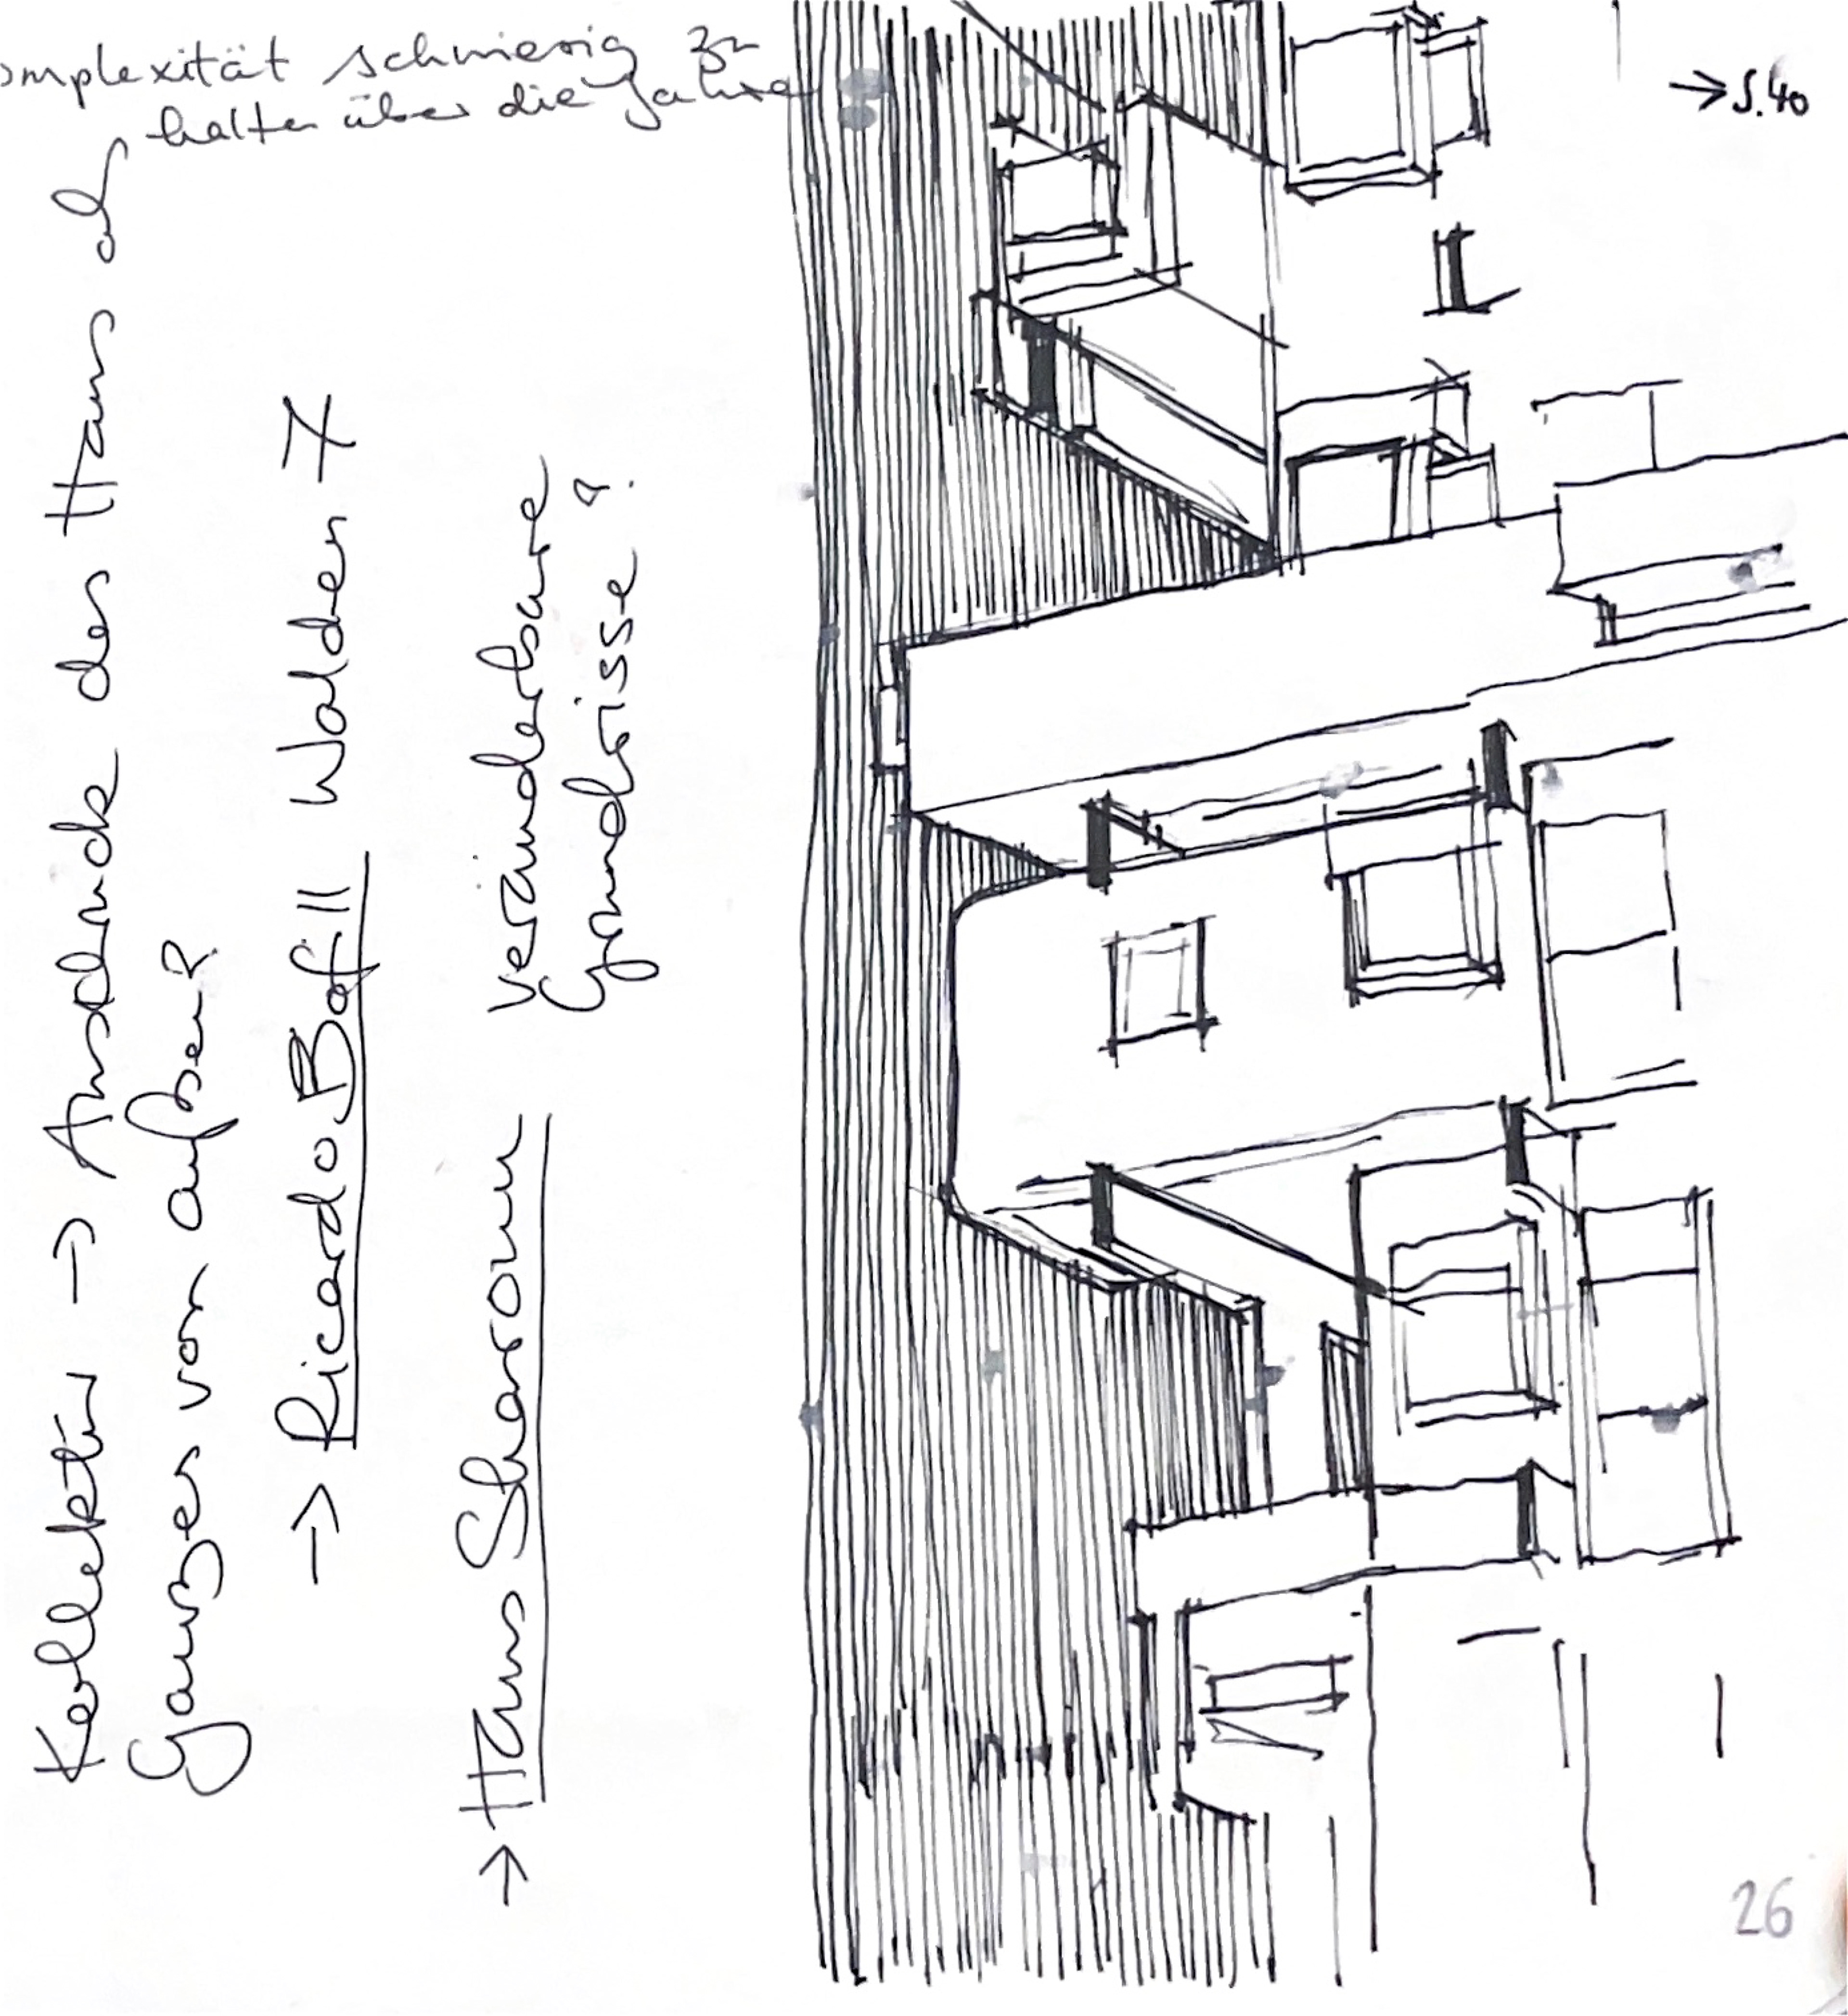 omplexität schwierig zu
halten über die Jahre
→ S.40
Kollektiv → Ausdruck des Haus als
Ganzes von außen?
→ Ricardo Bofill Walden 7
→ Hans Sharoun
veränderbare
Grundrisse?
26